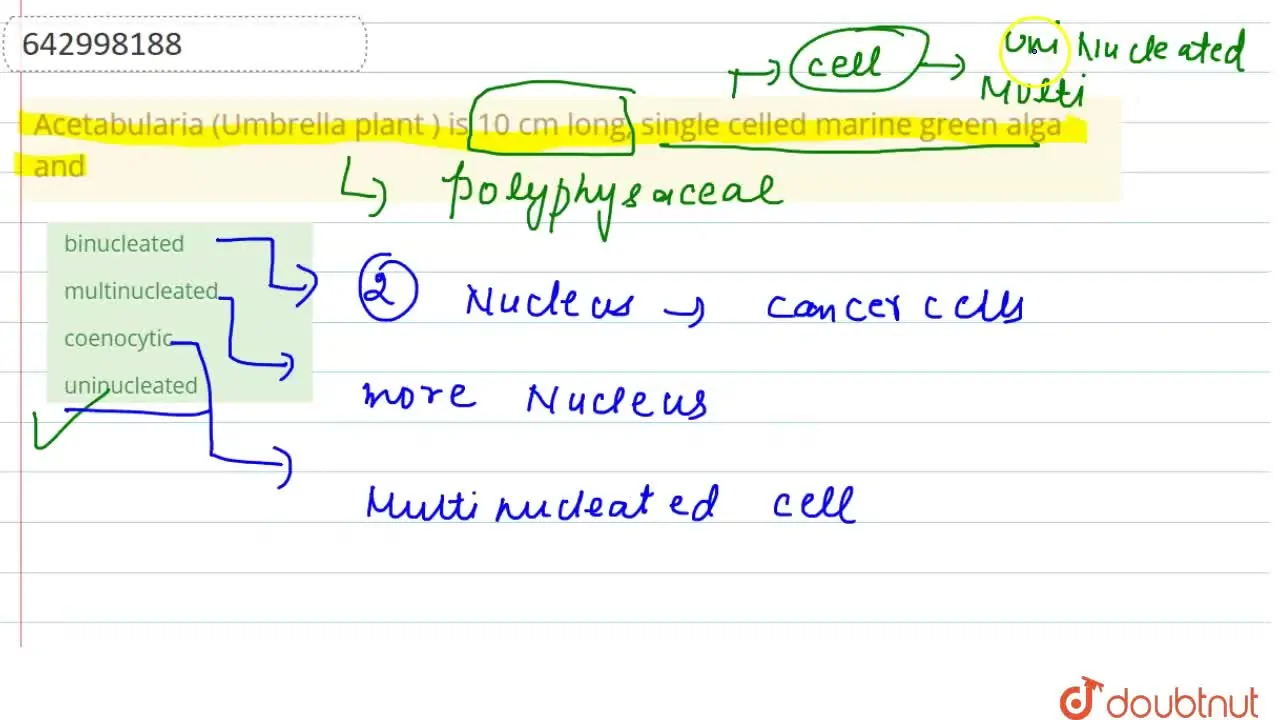 642998188
cell
Uni Nucleated
Multi
Acetabularia (Umbrella plant ) is 10 cm long, single celled marine green alga
and
polyphysaceal
binucleated
2 Nucleus → cancer cells
multinucleated
coenocytic
uninucleated
more Nucleus
Multinucleated cell
doubtnut